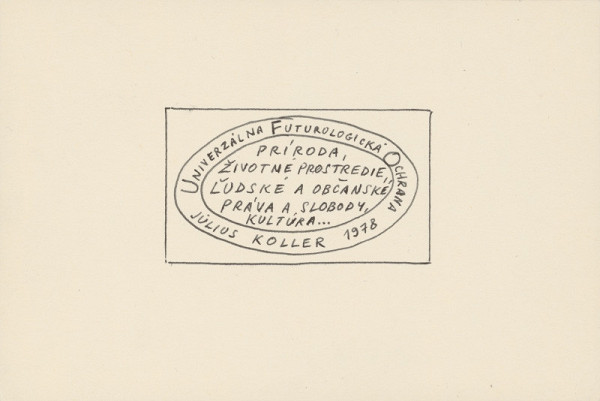 Univerzálna Futurologická Ochrana
Príroda,
Životné prostredie,
Ľudské a občianske
práva a slobody,
kultúra...
Július Koller 1978